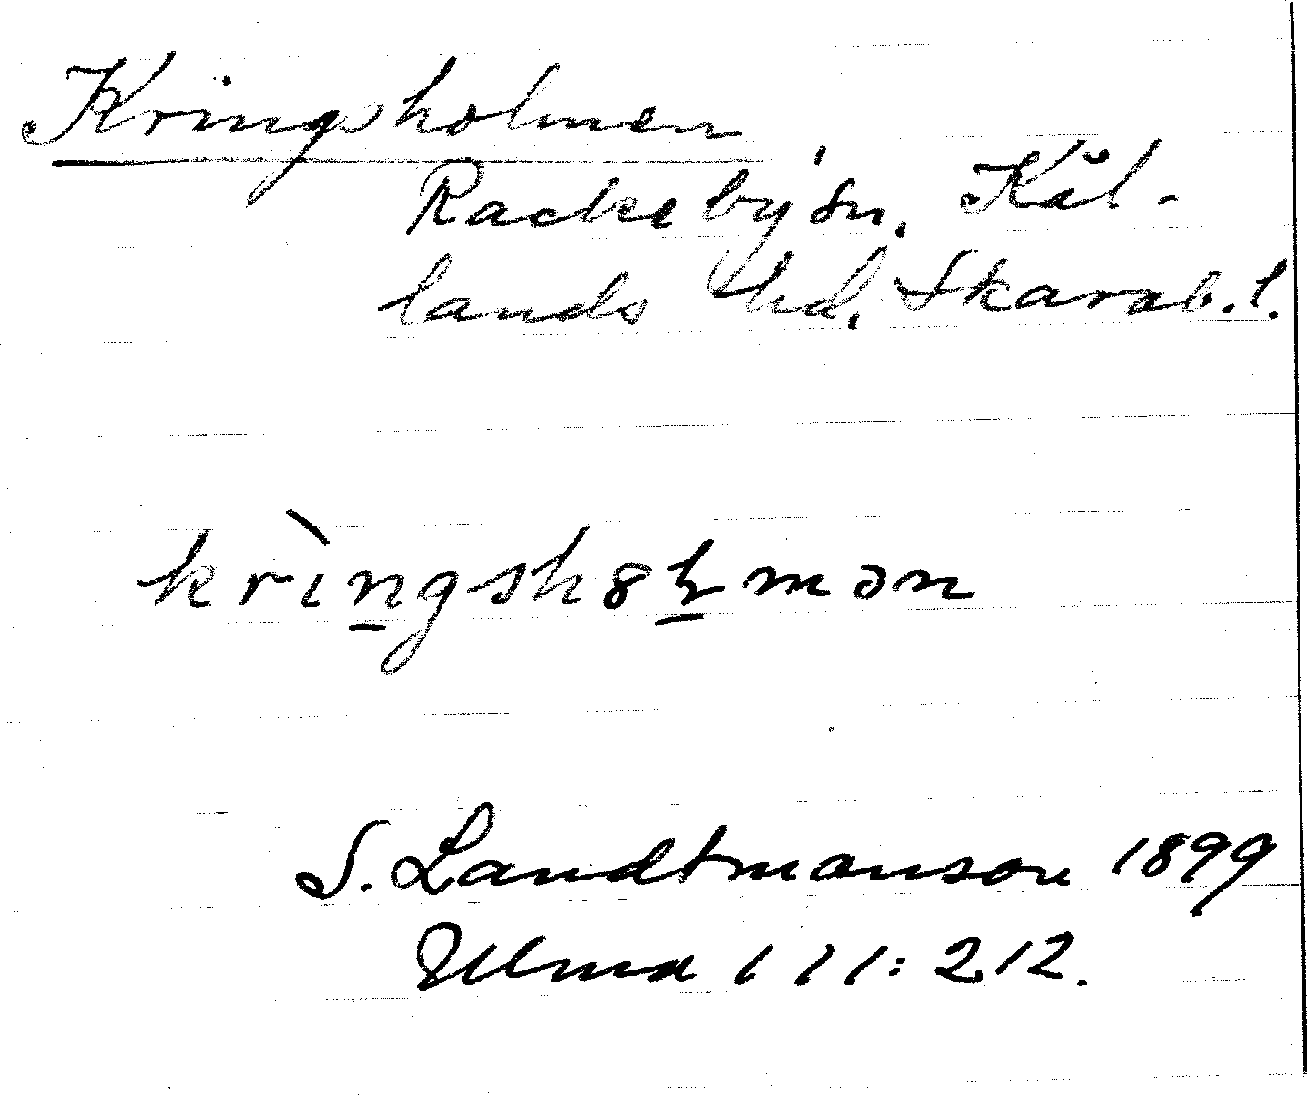 Kringsholmen
Rackeby sn. Kål-
lands hd. Skarab.l.
krìngshoɫmən
S. Landtmanson 1899
Ulma 111:212.